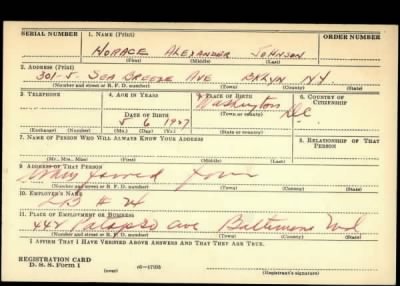 SERIAL NUMBER 1. NAME (Print) ORDER NUMBER
HORACE ALEXANDER JOHNSON
(First) (Middle) (Last)
2. ADDRESS (Print)
301-5 SEA BREEZE AVE BKLYN N.Y.
(Number and street or R. F. D. number) (Town) (County) (State)
3. TELEPHONE 4. AGE IN YEARS 5. PLACE OF BIRTH 6. COUNTRY OF CITIZENSHIP
Washington
DATE OF BIRTH (Town or county) D.C.
5 6 1927
(Exchange) (Number) (Mo.) (Day) (Yr.) (State or country)
7. NAME OF PERSON WHO WILL ALWAYS KNOW YOUR ADDRESS 8. RELATIONSHIP OF THAT PERSON
(Mr., Mrs., Miss) (First) (Middle) (Last)
9. ADDRESS OF THAT PERSON
(Number and street or R. F. D. number) (Town) (County) (State)
10. EMPLOYER'S NAME
# 24
11. PLACE OF EMPLOYMENT OR BUSINESS
Ave Baltimore Md
(Number and street or R. F. D. number) (Town) (County) (State)
I AFFIRM THAT I HAVE VERIFIED ABOVE ANSWERS AND THAT THEY ARE TRUE.
REGISTRATION CARD
D. S. S. Form 1 (Registrant's signature)